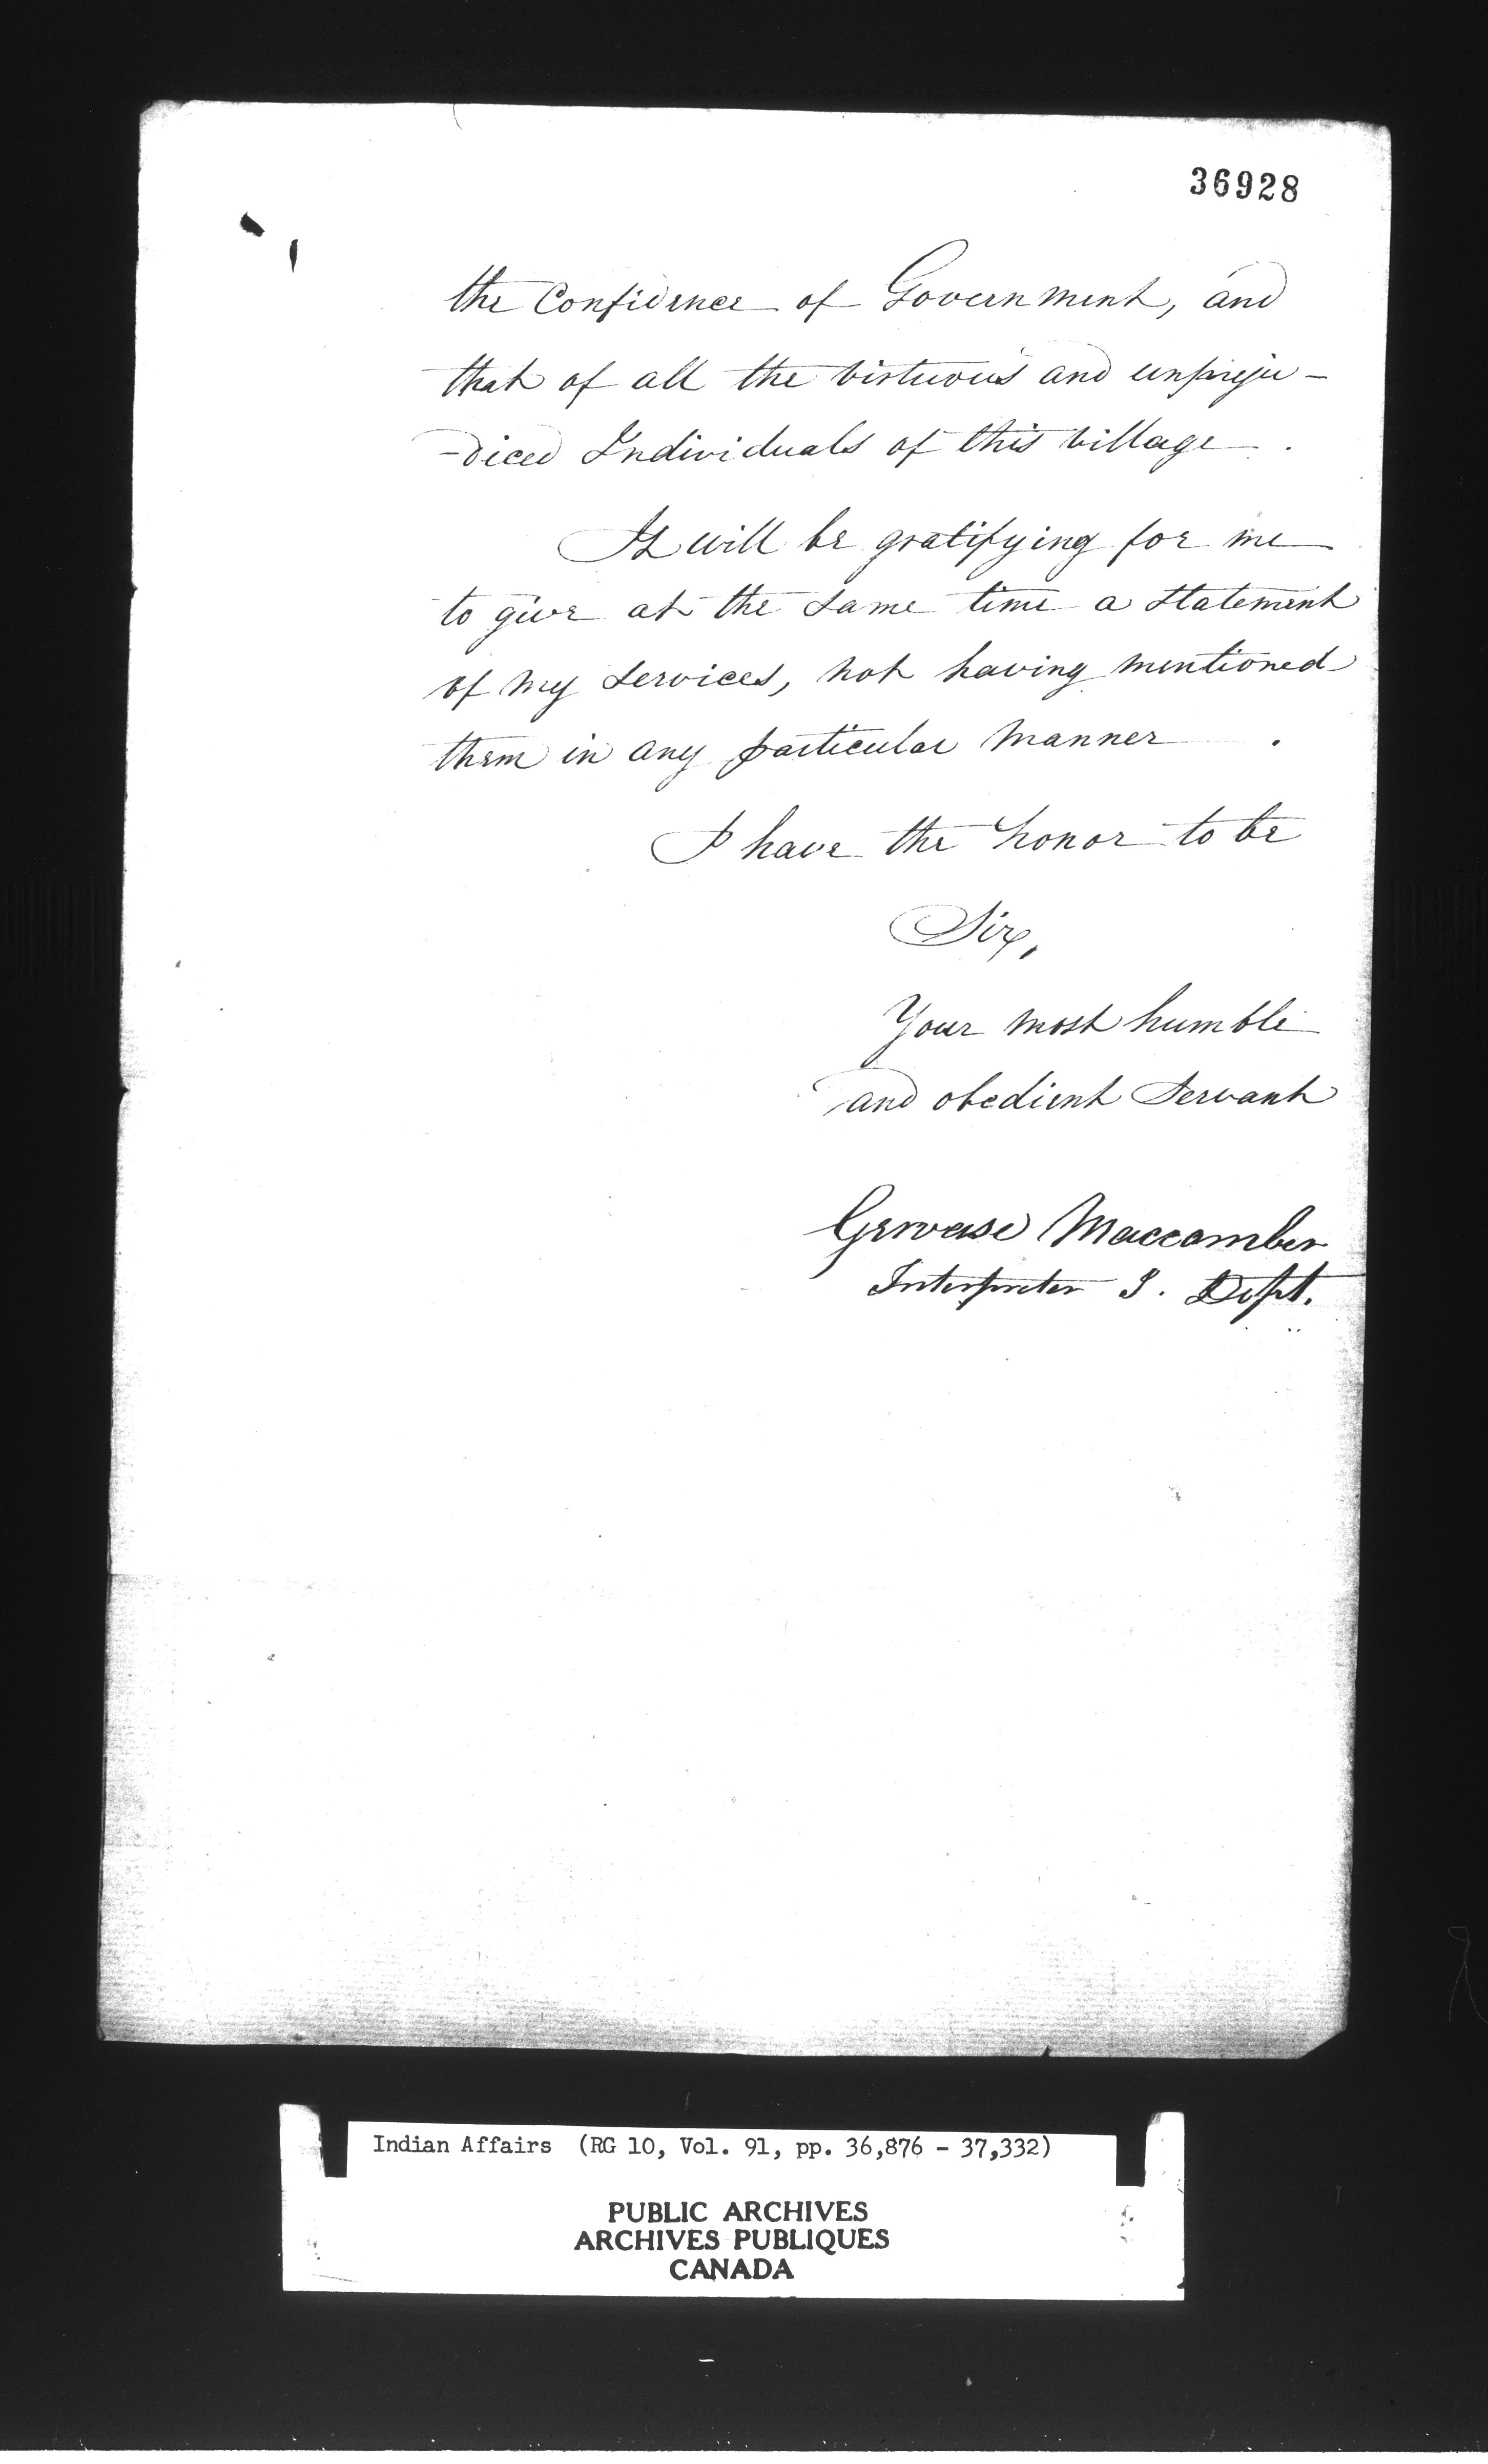 36928
the Confidence of Government, and
that of all the virtuous and unpreju-
-diced Individuals of this village.
It will be gratifying for me
to give at the same time a statement
of my services, not having mentioned
them in any particular manner.
I have the honor to be
Sir,
Your most humble
and obedient Servant
Gervase Maccomber
Interpreter I. Dept.
Indian Affairs (RG 10, Vol. 91, pp. 36,876 - 37,332)
PUBLIC ARCHIVES
ARCHIVES PUBLIQUES
CANADA